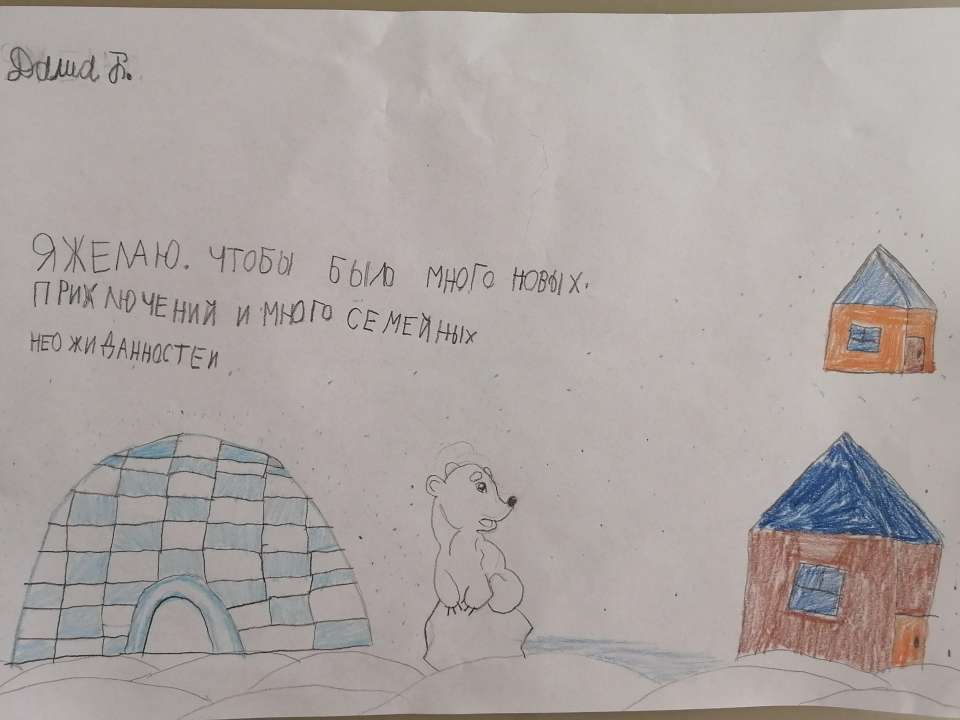 Даша В.
Я ЖЕЛАЮ. ЧТОБЫ БЫЛО МНОГО НОВЫХ.
ПРИКЛЮЧЕНИЙ И МНОГО СЕМЕЙНЫХ
НЕОЖИДАННОСТЕЙ